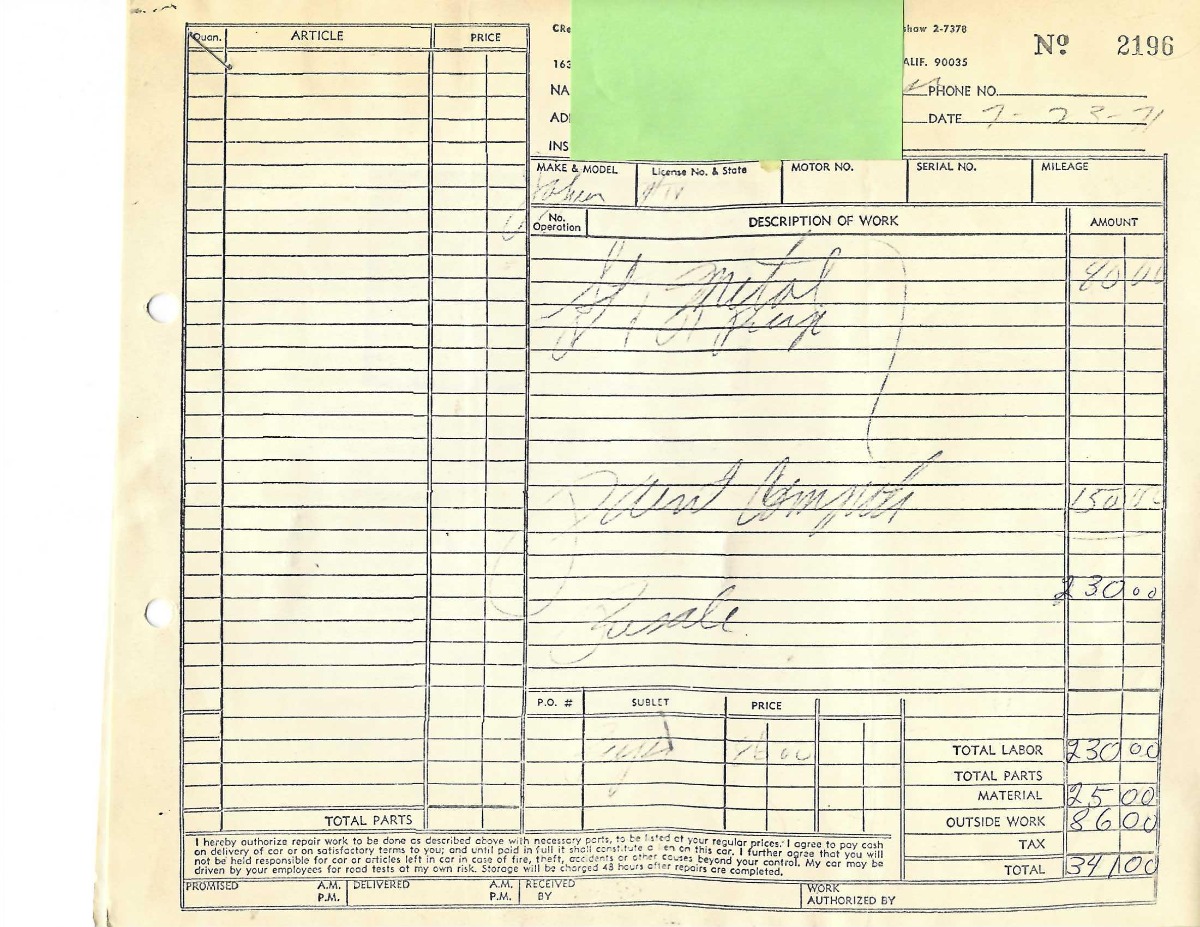 Quan. ARTICLE PRICE
CRe show 2-7378
Nº 2196
163 ALIF. 90035
NA PHONE NO.
ADI DATE 7-23-71
INS
MAKE & MODEL License No. & State MOTOR NO. SERIAL NO. MILEAGE
No. Operation DESCRIPTION OF WORK AMOUNT
Metal 80 00
Paint Complete 150 00
230 00
P.O. # SUBLET PRICE
86 00
TOTAL LABOR 230 00
TOTAL PARTS
MATERIAL 25 00
TOTAL PARTS
OUTSIDE WORK 86 00
TAX
TOTAL 341 00
I hereby authorize repair work to be done as described above with necessary parts, to be listed at your regular prices. I agree to pay cash
on delivery of car or on satisfactory terms to you; and until paid in full it shall constitute a lien on this car. I further agree that you will
not be held responsible for car or articles left in car in case of fire, theft, accidents or other causes beyond your control. My car may be
driven by your employees for road tests at my own risk. Storage will be charged 48 hours after repairs are completed.
PROMISED A.M. P.M. DELIVERED A.M. P.M. RECEIVED BY WORK AUTHORIZED BY